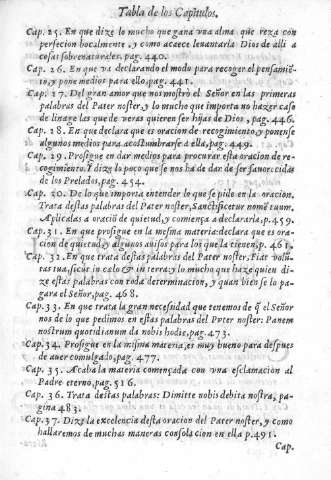 Tabla de los Capitulos.
Cap. 25. En que dize lo mucho que gana vna alma que reza con
perfecion bocalmente, y como acaece leuantarla Dios de alli a
cosas sobrenaturales. pag. 440.
Cap. 26. En que va declarando el modo para recoger el pensamiẽ-
to, y pone medios para ello, pag. 441.
Cap. 27. Del gran amor que nos mostrò el Señor en las primeras
palabras del Pater noster, y lo mucho que importa no hazer caso
de linage las que de veras quieren ser hijas de Dios, pag. 446.
Cap. 28. En que declara que es oracion de recogimiento, y ponense
algunos medios para acostumbrarse à ella, pag. 449.
Cap. 29. Prosigue en dar medios para procurar esta oracion de re-
cogimiento. Y dize lo poco que se nos ha de dar de ser fauorecidas
de los Prelados, pag. 454.
Cap. 30. De lo que importa entender lo que se pide en la oracion.
Trata destas palabras del Pater noster, Sanctificetur nomē tuum.
Aplicalas a oraciō de quietud, y comiença a declararla, p. 459.
Cap. 31. En que prosigue en la mesma materia: declara que es ora-
cion de quietud, y algunos auisos para los que la tienen, p. 461.
Cap. 32. En que trata destas palabras del Pater noster, Fiat volũ-
tas tua, sicut in cœlo & in terra; y lo mucho que haze quien di-
ze estas palabras con toda determinacion, y quan bien se lo pa-
gara el Señor, pag. 468.
Cap. 33. En que trata la gran necessidad que tenemos de q̃ el Señor
nos de lo que pedimos en estas palabras del Pater noster: Panem
nostrum quotidianum da nobis hodie, pag. 473.
Cap. 34. Prosigue en la misma materia, es muy bueno para despues
de auer comulgado, pag. 477.
Cap. 35. Acaba la materia començada con vna esclamacion al
Padre eterno, pag. 516.
Cap. 36. Trata destas palabras: Dimitte nobis debita nostra, pa-
gina 483.
Cap. 37. Dize la excelencia desta oracion del Pater noster, y como
hallaremos de muchas maneras consolacion en ella p. 491.
Cap.